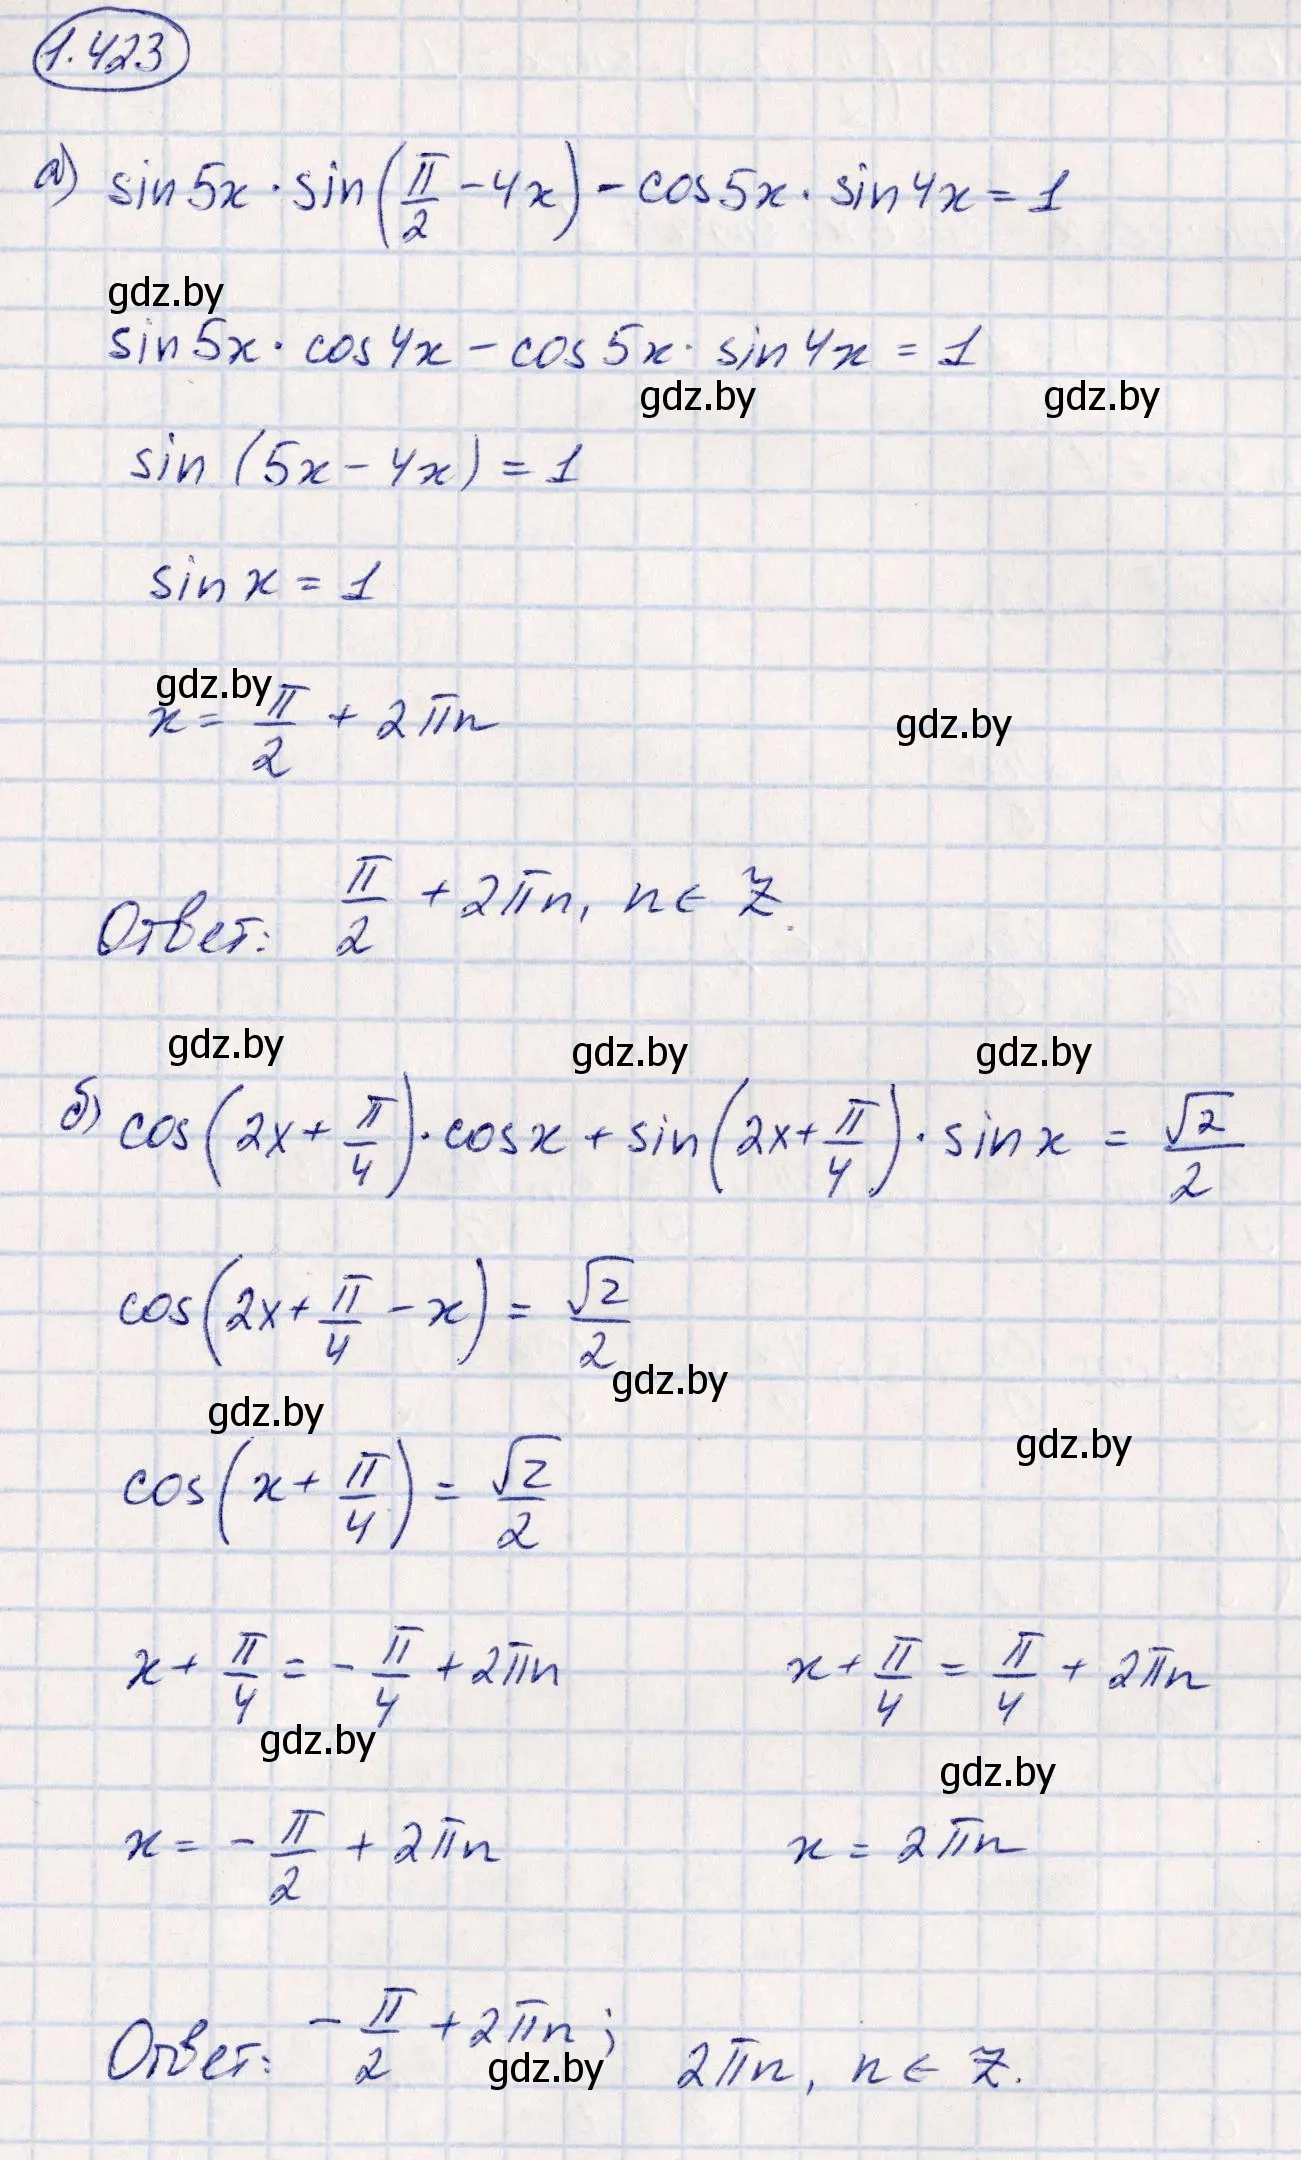 1.423
а) sin5x · sin(π/2 - 4x) - cos5x · sin4x = 1
gdz.by
sin5x · cos4x - cos5x · sin4x = 1
gdz.by gdz.by
sin(5x - 4x) = 1
sin x = 1
gdz.by
x = π/2 + 2πn
gdz.by
Ответ: π/2 + 2πn, n ∈ Z.
gdz.by gdz.by gdz.by
б) cos(2x + π/4) · cosx + sin(2x + π/4) · sinx = √2/2
cos(2x + π/4 - x) = √2/2
gdz.by
gdz.by
gdz.by
cos(x + π/4) = √2/2
x + π/4 = -π/4 + 2πn x + π/4 = π/4 + 2πn
gdz.by
gdz.by
x = -π/2 + 2πn x = 2πn
Ответ: -π/2 + 2πn; 2πn, n ∈ Z.
gdz.by